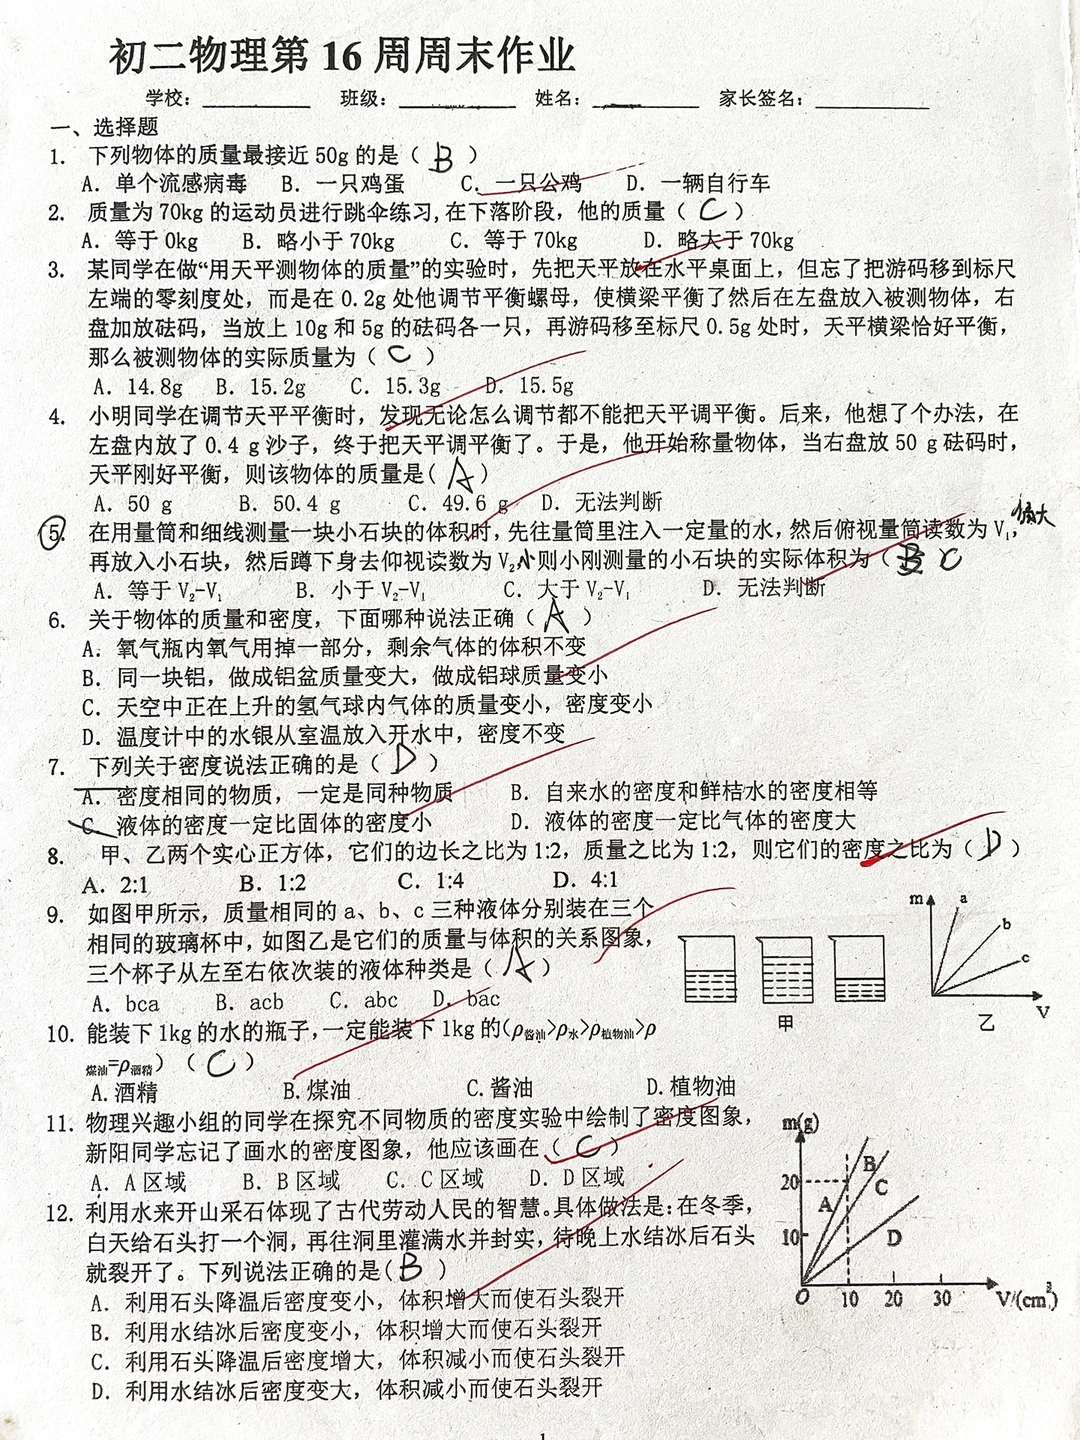 初二物理第 16 周周末作业
学校： 班级： 姓名： 家长签名：
一、选择题
1. 下列物体的质量最接近 50g 的是（ B ）
A. 单个流感病毒 B. 一只鸡蛋 C. 一只公鸡 D. 一辆自行车
2. 质量为 70kg 的运动员进行跳伞练习,在下落阶段，他的质量（ C ）
A. 等于 0kg B. 略小于 70kg C. 等于 70kg D. 略大于 70kg
3. 某同学在做“用天平测物体的质量”的实验时，先把天平放在水平桌面上，但忘了把游码移到标尺
左端的零刻度处，而是在 0.2g 处他调节平衡螺母，使横梁平衡了然后在左盘放入被测物体，右
盘加放砝码，当放上 10g 和 5g 的砝码各一只，再游码移至标尺 0.5g 处时，天平横梁恰好平衡，
那么被测物体的实际质量为（ C ）
A. 14.8g B. 15.2g C. 15.3g D. 15.5g
4. 小明同学在调节天平平衡时，发现无论怎么调节都不能把天平调平衡。后来，他想了个办法，在
左盘内放了 0.4 g 沙子，终于把天平调平衡了。于是，他开始称量物体，当右盘放 50 g 砝码时，
天平刚好平衡，则该物体的质量是( A )
A. 50 g B. 50.4 g C. 49.6 g D. 无法判断
5. 在用量筒和细线测量一块小石块的体积时，先往量筒里注入一定量的水，然后俯视量筒读数为 V₁，
偏大
再放入小石块，然后蹲下身去仰视读数为 V₂小则小刚测量的小石块的实际体积为（ B C
A. 等于 V₂-V₁ B. 小于 V₂-V₁ C. 大于 V₂-V₁ D. 无法判断
6. 关于物体的质量和密度，下面哪种说法正确（ A ）
A. 氧气瓶内氧气用掉一部分，剩余气体的体积不变
B. 同一块铝，做成铝盆质量变大，做成铝球质量变小
C. 天空中正在上升的氢气球内气体的质量变小，密度变小
D. 温度计中的水银从室温放入开水中，密度不变
7. 下列关于密度说法正确的是（ D ）
A. 密度相同的物质，一定是同种物质 B. 自来水的密度和鲜桔水的密度相等
C. 液体的密度一定比固体的密度小 D. 液体的密度一定比气体的密度大
8. 甲、乙两个实心正方体，它们的边长之比为 1:2，质量之比为 1:2，则它们的密度之比为（ D ）
A. 2:1 B. 1:2 C. 1:4 D. 4:1
9. 如图甲所示，质量相同的 a、b、c 三种液体分别装在三个
相同的玻璃杯中，如图乙是它们的质量与体积的关系图象，
三个杯子从左至右依次装的液体种类是（ A ）
A. bca B. acb C. abc D. bac
m a b c V
甲 乙
10. 能装下 1kg 的水的瓶子，一定能装下 1kg 的(ρ酱油>ρ水>ρ植物油>ρ
煤油=ρ酒精）（ C ）
A.酒精 B.煤油 C.酱油 D.植物油
11. 物理兴趣小组的同学在探究不同物质的密度实验中绘制了密度图象，
新阳同学忘记了画水的密度图象，他应该画在（ C ）
A. A 区域 B. B 区域 C. C 区域 D. D 区域
m(g)
20 10
A B C D
O 10 20 30 V/(cm³)
12. 利用水来开山采石体现了古代劳动人民的智慧。具体做法是：在冬季，
白天给石头打一个洞，再往洞里灌满水并封实，待晚上水结冰后石头
就裂开了。下列说法正确的是( B )
A. 利用石头降温后密度变小，体积增大而使石头裂开
B. 利用水结冰后密度变小，体积增大而使石头裂开
C. 利用石头降温后密度增大，体积减小而使石头裂开
D. 利用水结冰后密度变大，体积减小而使石头裂开
1